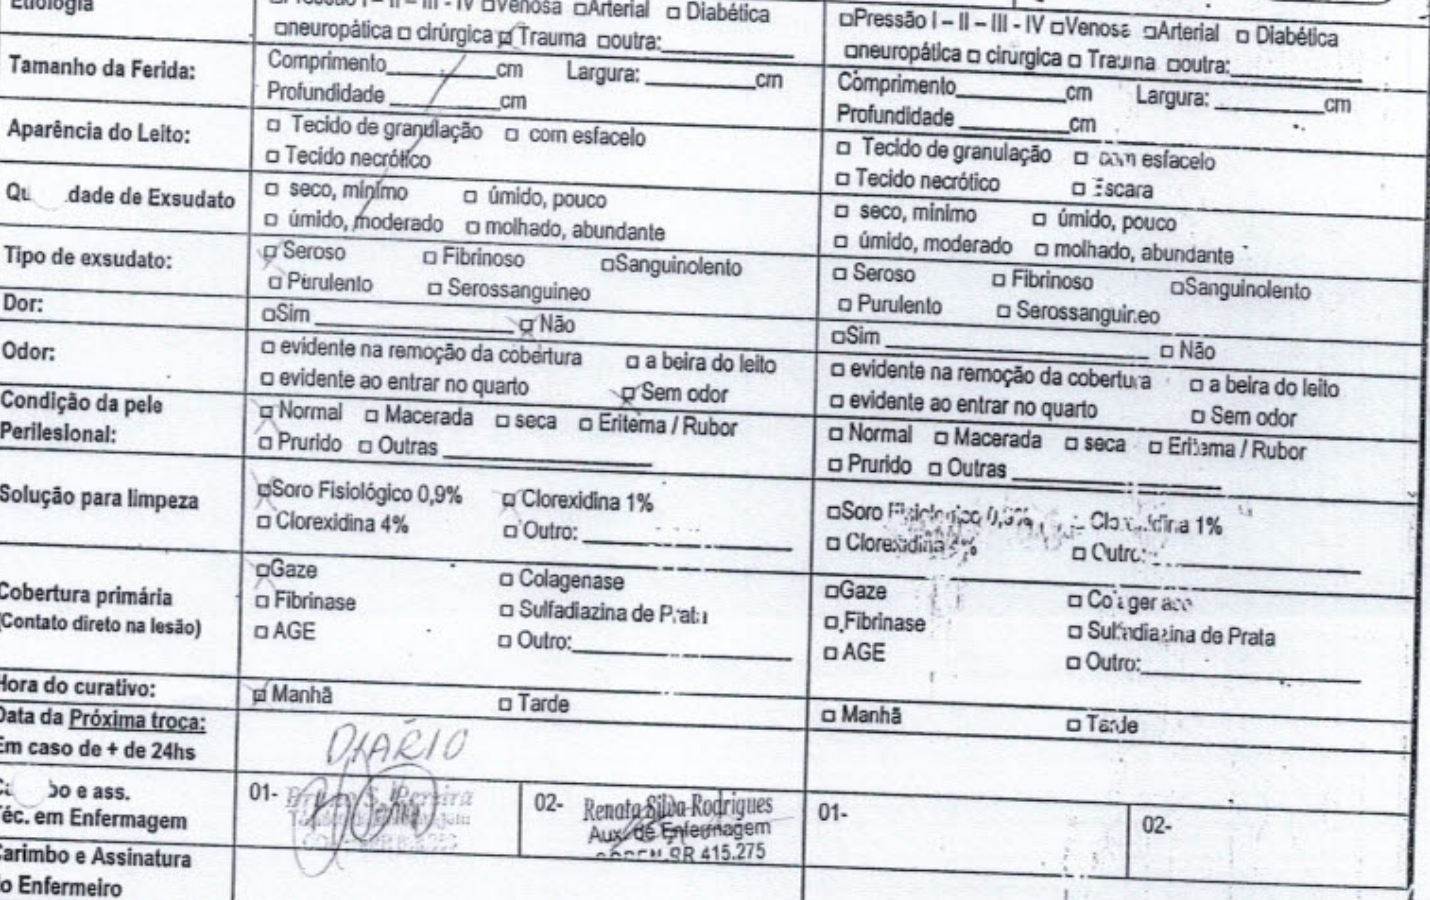 Etiologia
□Pressão I – II – III - IV □Venosa □Arterial □ Diabética
□neuropática □ cirúrgica □ Trauma □outra:
□Pressão I – II – III - IV □Venosa □Arterial □ Diabética
□neuropática □ cirúrgica □ Trauma □outra:
Tamanho da Ferida:
Comprimento cm Largura: cm
Profundidade cm
Comprimento cm Largura: cm
Profundidade cm
Aparência do Leito:
□ Tecido de granulação □ com esfacelo
□ Tecido necrótico
□ Tecido de granulação □ com esfacelo
□ Tecido necrótico □ Escara
dade de Exsudato
□ seco, mínimo □ úmido, pouco
□ úmido, moderado □ molhado, abundante
□ seco, minimo □ úmido, pouco
□ úmido, moderado □ molhado, abundante
Tipo de exsudato:
□ Seroso □ Fibrinoso □Sanguinolento
□ Purulento □ Serossanguineo
□ Seroso □ Fibrinoso □Sanguinolento
□ Purulento □ Serossanguineo
Dor:
□Sim □ Não
□Sim □ Não
Odor:
□ evidente na remoção da cobertura □ a beira do leito
□ evidente ao entrar no quarto □ Sem odor
□ evidente na remoção da cobertura □ a beira do leito
□ evidente ao entrar no quarto □ Sem odor
Condição da pele
Perilesional:
□ Normal □ Macerada □ seca □ Eritema / Rubor
□ Prurido □ Outras
□ Normal □ Macerada □ seca □ Eritema / Rubor
□ Prurido □ Outras
Solução para limpeza
□Soro Fisiológico 0,9% □ Clorexidina 1%
□ Clorexidina 4% □ Outro:
□Soro Fisiológico 0,9% □ Clorexidina 1%
□ Clorexidina 4% □ Outro:
Cobertura primária
(Contato direto na lesão)
□Gaze □ Colagenase
□ Fibrinase □ Sulfadiazina de Prata
□ AGE □ Outro:
□Gaze □ Colagenase
□ Fibrinase □ Sulfadiazina de Prata
□ AGE □ Outro:
Hora do curativo:
□ Manhã □ Tarde
□ Manhã □ Tarde
Data da Próxima troca:
Em caso de + de 24hs
DIÁRIO
bo e ass.
Téc. em Enfermagem
01-
02- Renata Silva Rodrigues
Aux. de Enfermagem
415.275
01-
02-
Carimbo e Assinatura
do Enfermeiro